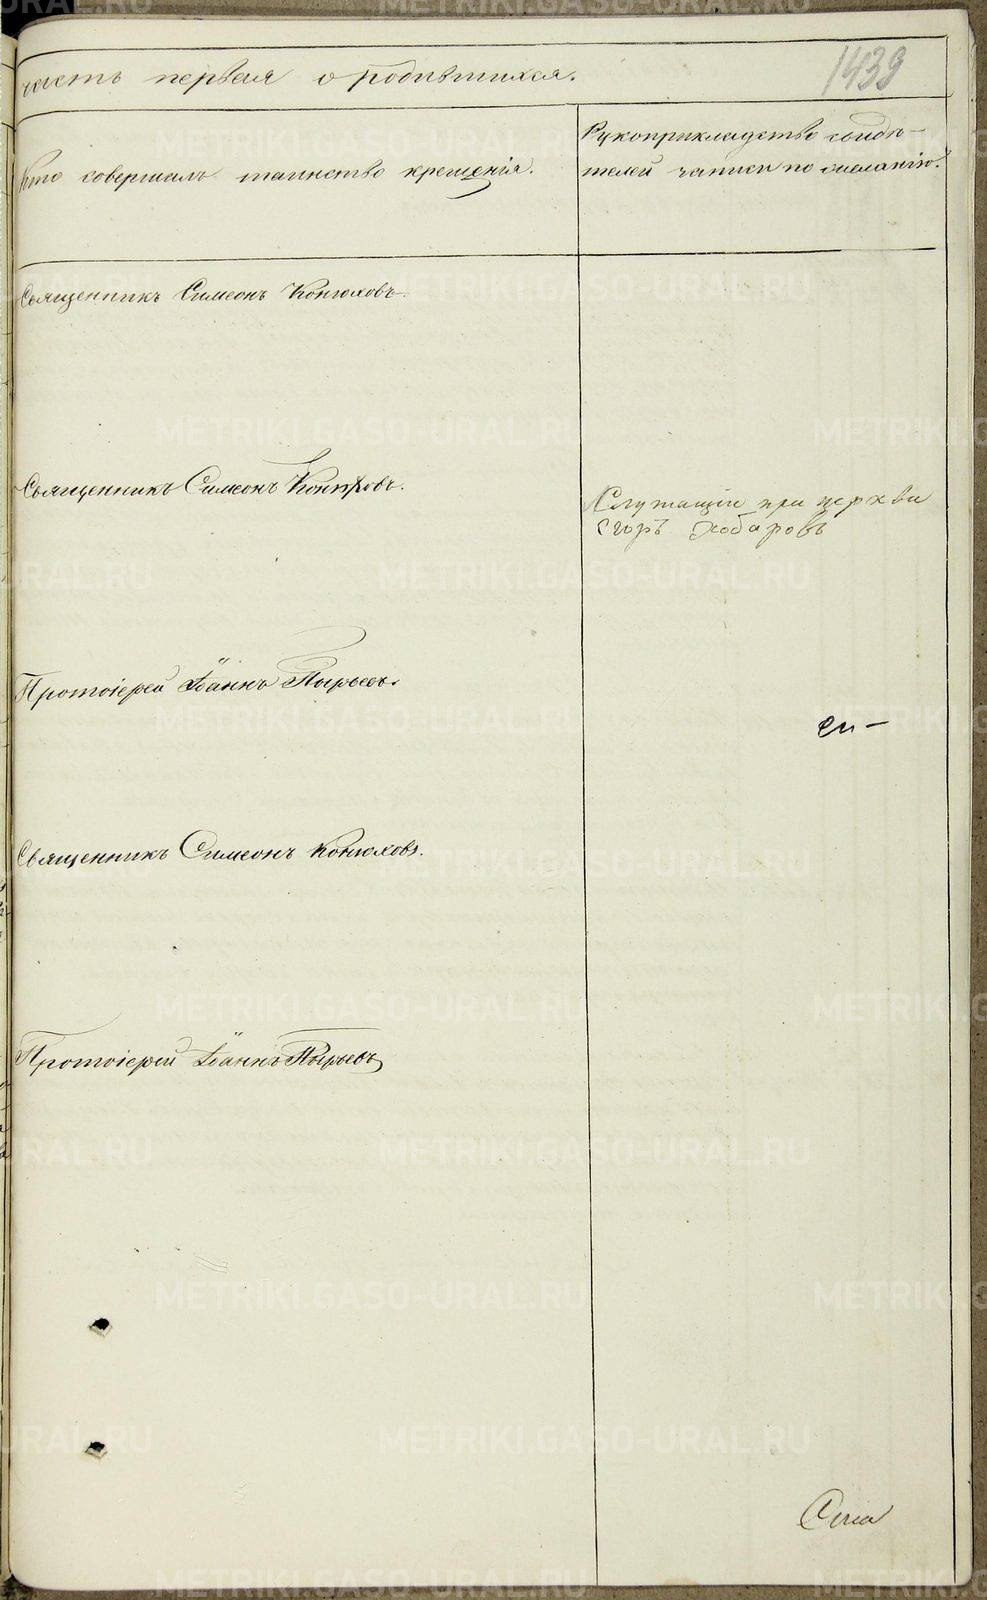 часть первая о родившихся.
1439
Кто совершалъ таинство крещенія.
Рукоприкладство свидѣ-
телей записи по желанію.
Священникъ Симеонъ Конюховъ.
Священникъ Симеонъ Конюховъ.
Служащій при церкви
Егоръ Хобаровъ
Протоіерей Іоаннъ Пырьевъ.
Священникъ Симеонъ Конюховъ.
Протоіерей Іоаннъ Пырьевъ
METRIKI.GASO-URAL.RU